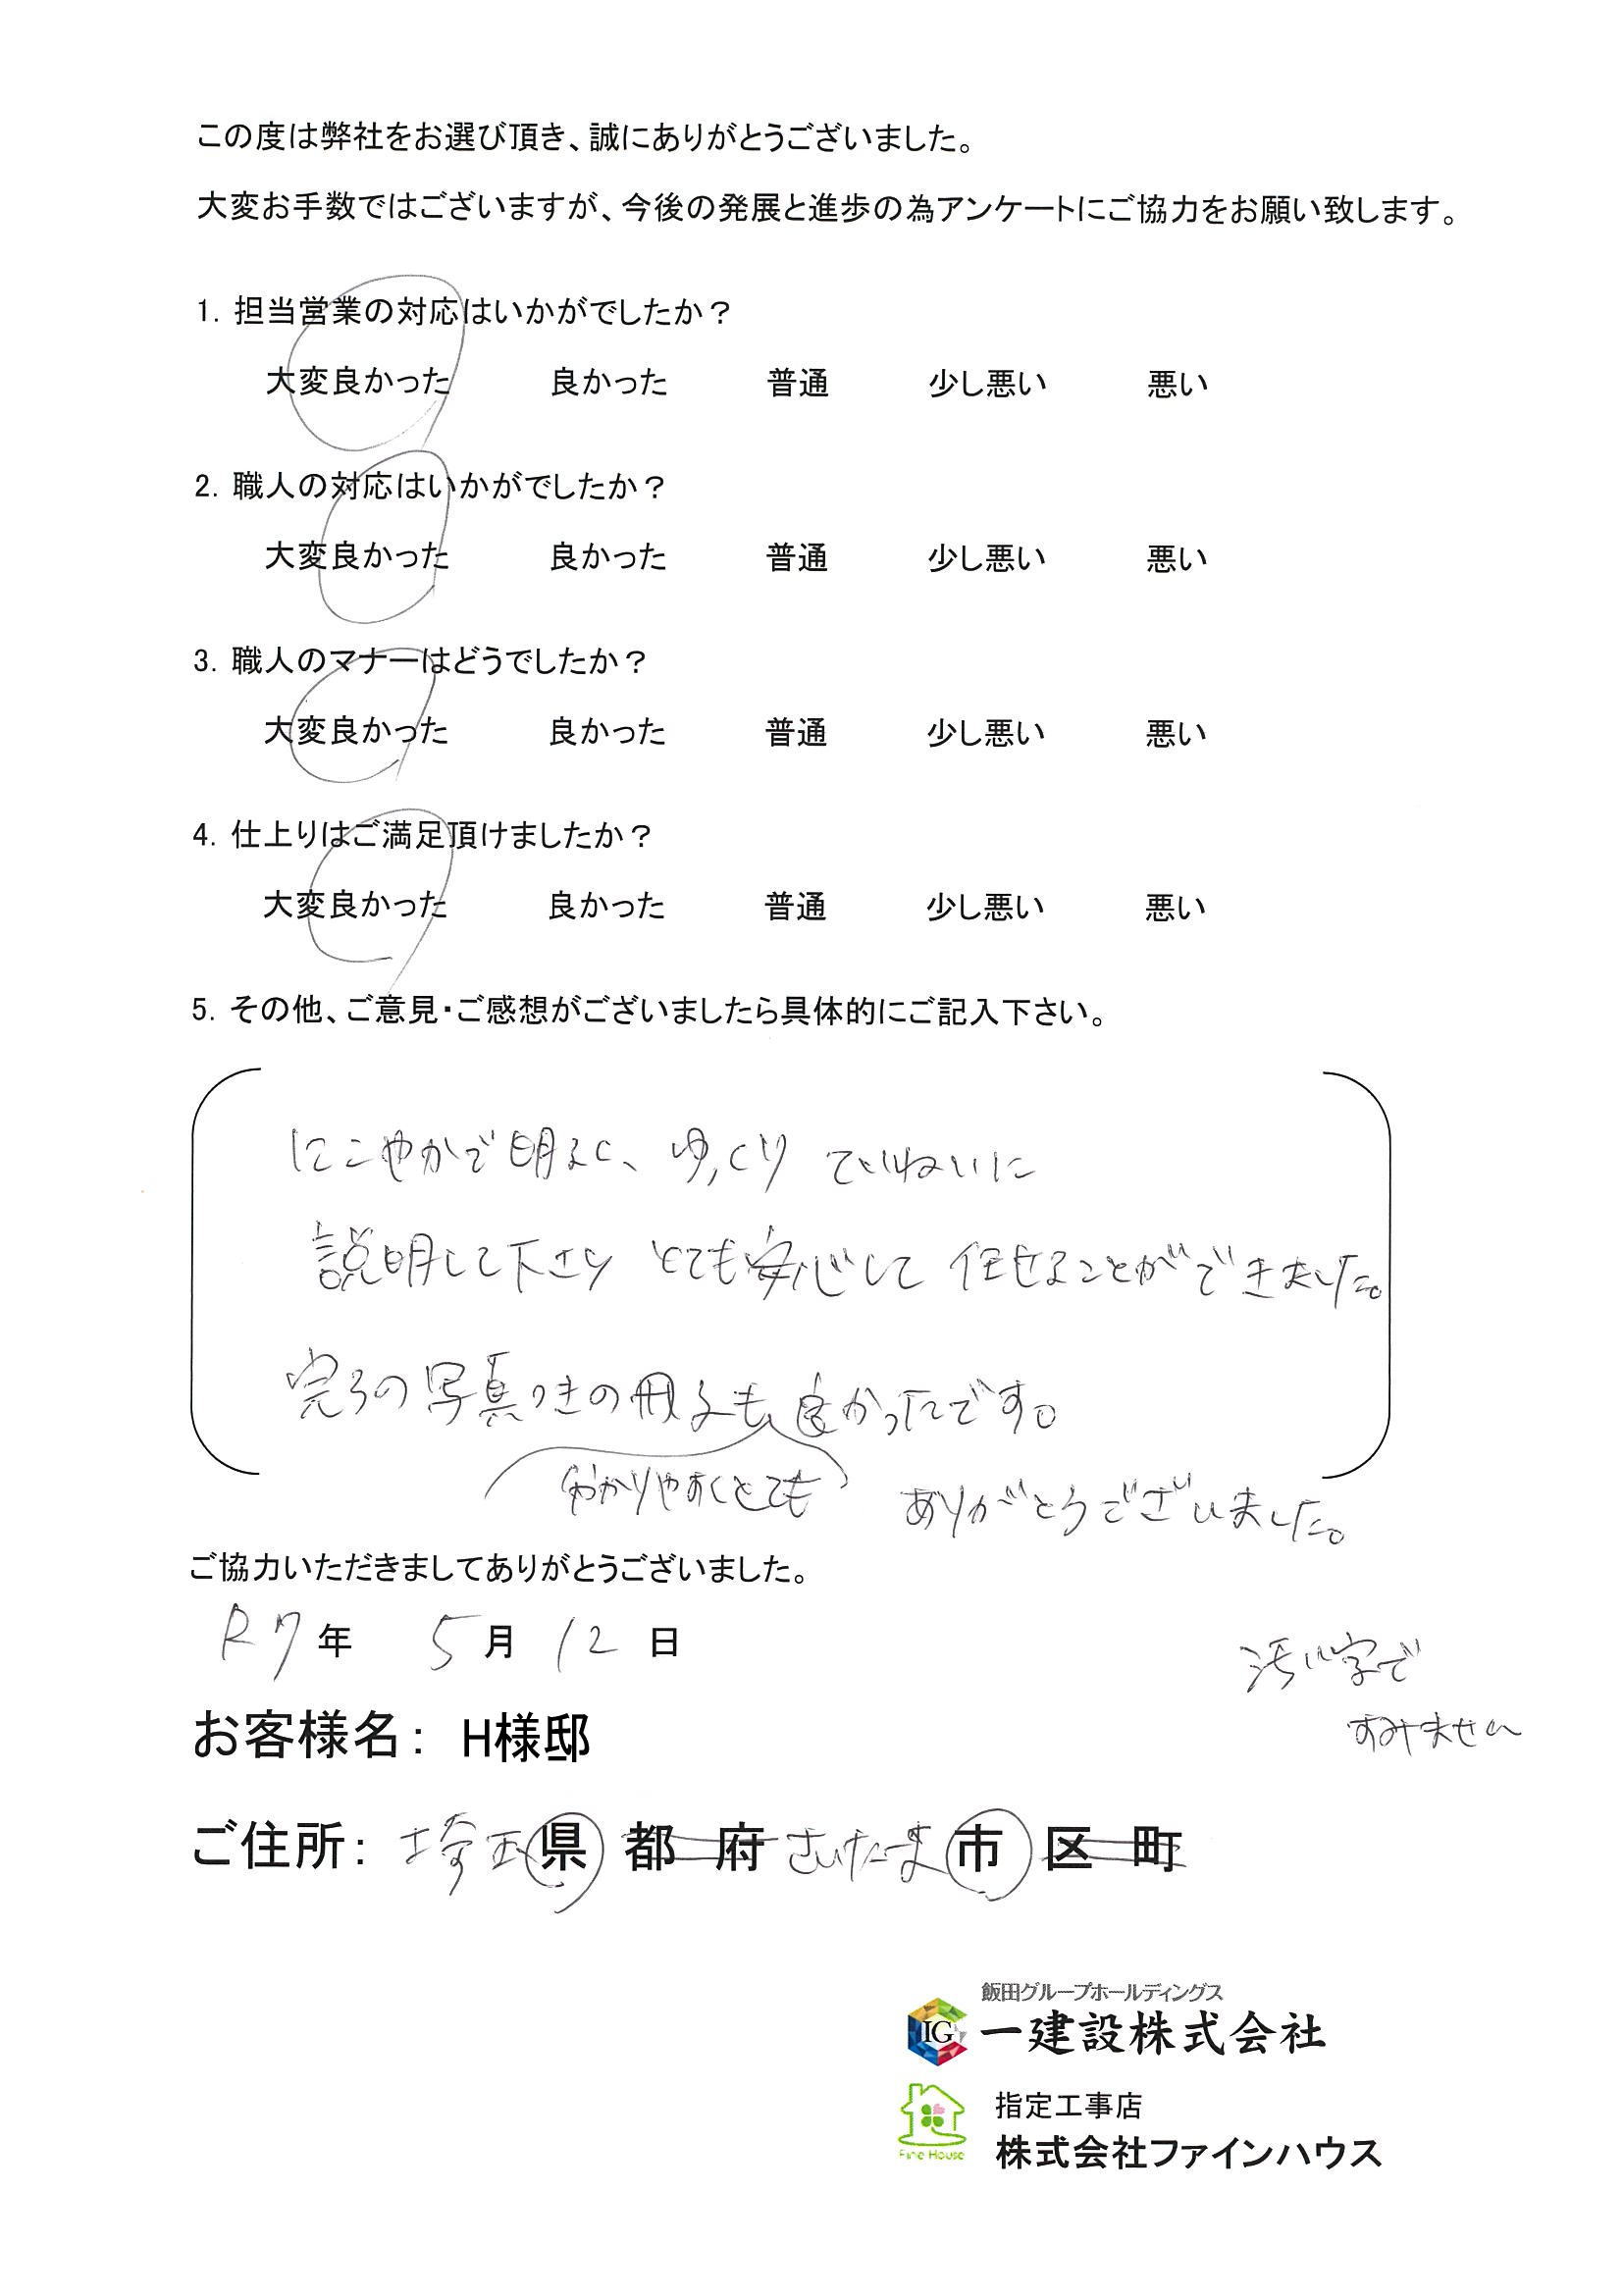 この度は弊社をお選び頂き、誠にありがとうございました。
大変お手数ではございますが、今後の発展と進歩の為アンケートにご協力をお願い致します。
1. 担当営業の対応はいかがでしたか？
大変良かった 良かった 普通 少し悪い 悪い
2. 職人の対応はいかがでしたか？
大変良かった 良かった 普通 少し悪い 悪い
3. 職人のマナーはどうでしたか？
大変良かった 良かった 普通 少し悪い 悪い
4. 仕上りはご満足頂けましたか？
大変良かった 良かった 普通 少し悪い 悪い
5. その他、ご意見・ご感想がございましたら具体的にご記入下さい。
にこやかで明るく、ゆっくり ていねいに
説明して下さり とても安心して 任せることができました。
完了の写真つきの冊子も 良かったです。
分かりやすくとても
ありがとうございました。
ご協力いただきましてありがとうございました。
R7年 5月 12日
汚い字で
すみません
お客様名： H様邸
ご住所： 埼玉県 都 府 さいたま市 区 町
飯田グループホールディングス
IG 一建設株式会社
指定工事店
Fine House 株式会社ファインハウス